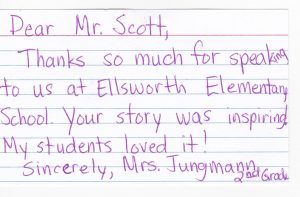 Dear Mr. Scott,
Thanks so much for speaking
to us at Ellsworth Elementary
School. Your story was inspiring!
My students loved it!
Sincerely, Mrs. Jungmann
2nd Grade